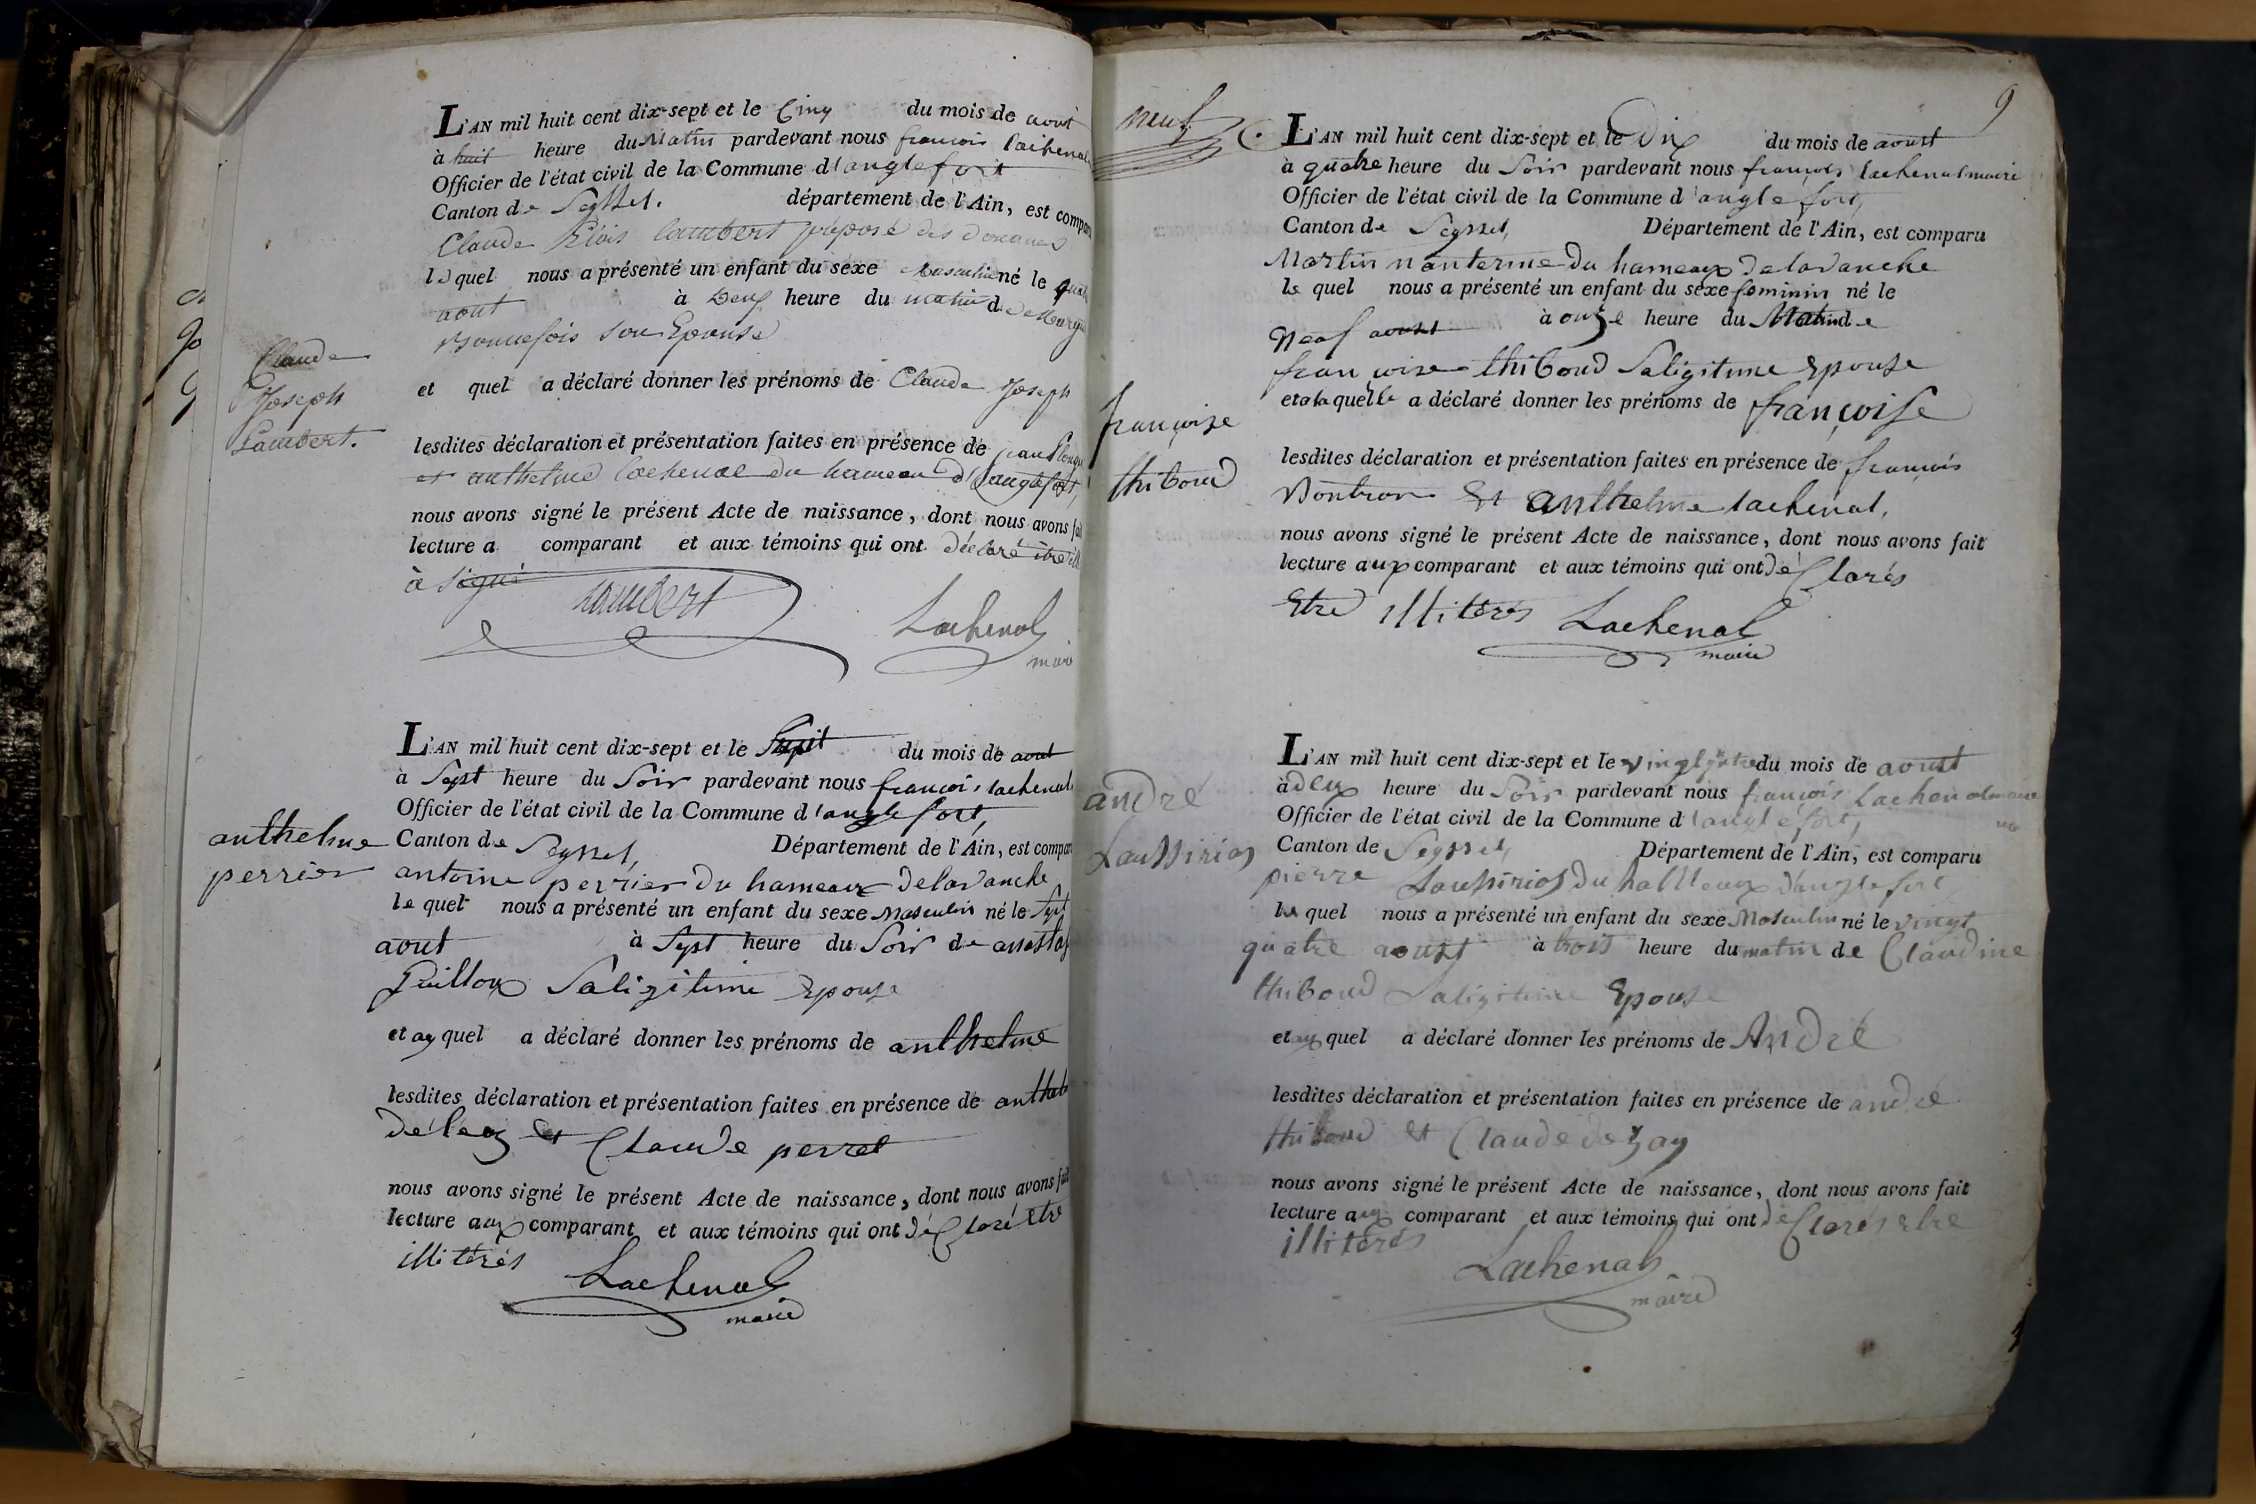 Claude
Joseph
Lambert.
L'AN mil huit cent dix-sept et le Cinq du mois de aout
à huit heure du Matin pardevant nous francois lachenal
Officier de l'état civil de la Commune d'anglefort
Canton de Seyssel. département de l'Ain, est comparu
Claude lambert préposé des douanes
le quel nous a présenté un enfant du sexe Masculin né le quatre
aout à Deux heure du matin de
Bonnefois son Epouse
et quel a déclaré donner les prénoms de Claude Joseph
lesdites déclaration et présentation faites en présence de
et anthelme lachenal du hameau d'anglefort,
nous avons signé le présent Acte de naissance, dont nous avons fait
lecture a comparant et aux témoins qui ont déclaré être
à signé
Lambert
Lachenal
maire
anthelme
perrier
L'AN mil huit cent dix-sept et le Sept du mois de aout
à Sept heure du Soir pardevant nous francois lachenal
Officier de l'état civil de la Commune d'anglefort,
Canton de Seyssel, Département de l'Ain, est comparu
antoine perrier du hameaux delavanche
le quel nous a présenté un enfant du sexe Masculin né le Sept
aout à Sept heure du Soir de
Guilloux Saligitime Epouse
et au quel a déclaré donner les prénoms de anthelme
lesdites déclaration et présentation faites en présence de
et Claude perret
nous avons signé le présent Acte de naissance, dont nous avons fait
lecture aux comparant et aux témoins qui ont déClaré etre
illitérés
Lachenal
maire
neuf
9
françoise
thiboud
L'AN mil huit cent dix-sept et le Dix du mois de aoust
à quatre heure du Soir pardevant nous françois lachenal maire
Officier de l'état civil de la Commune d'anglefort,
Canton de Seyssel, Département de l'Ain, est comparu
Martin nanterme du hameaux delavanche
le quel nous a présenté un enfant du sexe feminin né le
Neuf aoust à onze heure du Matin de
françoise thiboud Saligitime Epouse
et a la quelle a déclaré donner les prénoms de françoise
lesdites déclaration et présentation faites en présence de françois
Bontron Et anthelme lachenal,
nous avons signé le présent Acte de naissance, dont nous avons fait
lecture aux comparant et aux témoins qui ont déClarés
Etre illitérés
Lachenal
maire
andré
L'AN mil huit cent dix-sept et le du mois de aoust
à deux heure du Soir pardevant nous françois Lachenal maire
Officier de l'état civil de la Commune d'anglefort,
Canton de Seyssel, Département de l'Ain, est comparu
pierre du d'anglefort
le quel nous a présenté un enfant du sexe Masculin né le vingt
quatre aoust à trois heure du matin de Claudine
thiboud Saligitime Epouse
et au quel a déclaré donner les prénoms de André
lesdites déclaration et présentation faites en présence de andré
thiboud et Claude
nous avons signé le présent Acte de naissance, dont nous avons fait
lecture aux comparant et aux témoins qui ont déClarés etre
illitérés
Lachenal
maire